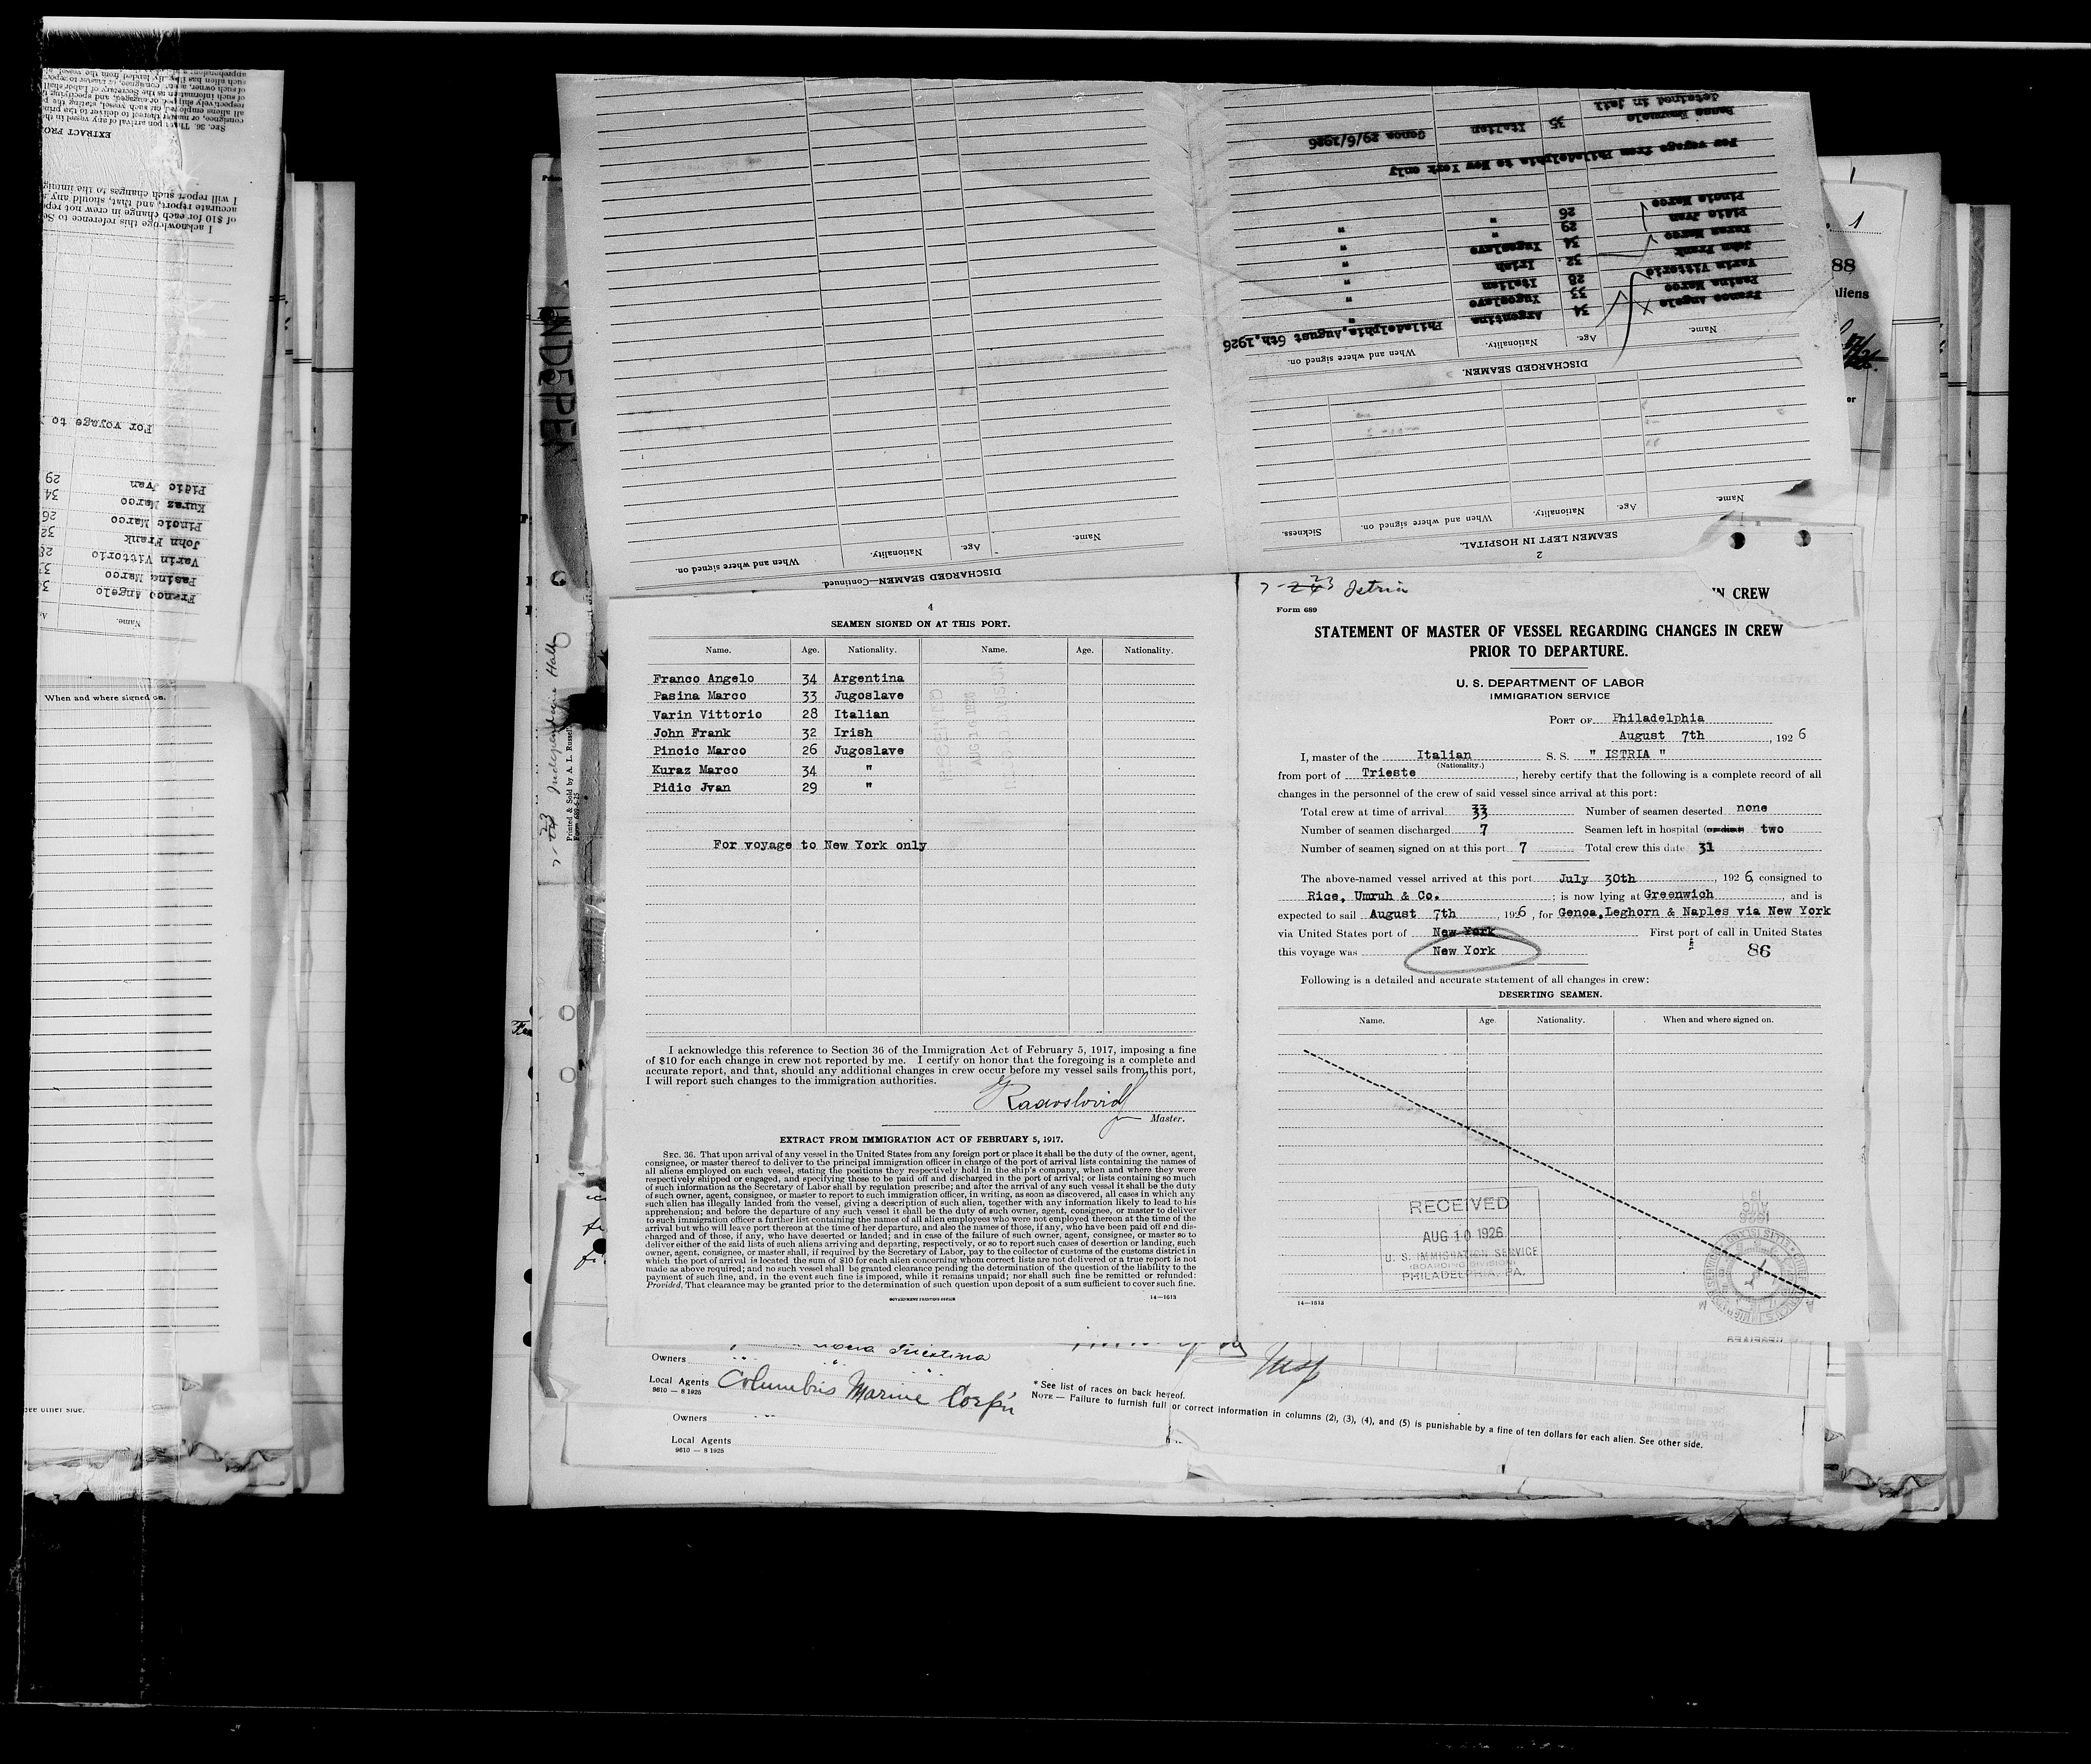 4
SEAMEN SIGNED ON AT THIS PORT.
Name. Age. Nationality. Name. Age. Nationality.
Franco Angelo 34 Argentina
Pasina Marco 33 Jugoslave
Varin Vittorio 28 Italian
John Frank 32 Irish
Pincic Marco 26 Jugoslave
Kuraz Marco 34 "
Pidic Jvan 29 "
For voyage to New York only
I acknowledge this reference to Section 36 of the Immigration Act of February 5, 1917, imposing a fine
of $10 for each change in crew not reported by me. I certify on honor that the foregoing is a complete and
accurate report, and that, should any additional changes in crew occur before my vessel sails from this port,
I will report such changes to the immigration authorities.
Master.
EXTRACT FROM IMMIGRATION ACT OF FEBRUARY 5, 1917.
SEC. 36. That upon arrival of any vessel in the United States from any foreign port or place it shall be the duty of the owner, agent,
consignee, or master thereof to deliver to the principal immigration officer in charge of the port of arrival lists containing the names of
all aliens employed on such vessel, stating the positions they respectively hold in the ship's company, when and where they were
respectively shipped or engaged, and specifying those to be paid off and discharged in the port of arrival; or lists containing so much
of such information as the Secretary of Labor shall by regulation prescribe; and after the arrival of any such vessel it shall be the duty
of such owner, agent, consignee, or master to report to such immigration officer, in writing, as soon as discovered, all cases in which any
such alien has illegally landed from the vessel, giving a description of such alien, together with any information likely to lead to his
apprehension; and before the departure of any such vessel it shall be the duty of such owner, agent, consignee, or master to deliver
to such immigration officer a further list containing the names of all alien employees who were not employed thereon at the time of the
arrival but who will leave port thereon at the time of her departure, and also the names of those, if any, who have been paid off and dis-
charged and of those, if any, who have deserted or landed; and in case of the failure of such owner, agent, consignee, or master so to
deliver either of the said lists of such aliens arriving and departing, respectively, or so to report such cases of desertion or landing, such
owner, agent, consignee, or master shall, if required by the Secretary of Labor, pay to the collector of customs of the customs district in
which the port of arrival is located the sum of $10 for each alien concerning whom correct lists are not delivered or a true report is not
made as above required; and no such vessel shall be granted clearance pending the determination of the question of the liability to the
payment of such fine, and, in the event such fine is imposed, while it remains unpaid; nor shall such fine be remitted or refunded:
Provided, That clearance may be granted prior to the determination of such question upon deposit of a sum sufficient to cover such fine.
GOVERNMENT PRINTING OFFICE 14—1613
Istria
IN CREW
Form 689
STATEMENT OF MASTER OF VESSEL REGARDING CHANGES IN CREW
PRIOR TO DEPARTURE.
U. S. DEPARTMENT OF LABOR
IMMIGRATION SERVICE
PORT OF Philadelphia
August 7th, 1926
I, master of the Italian S. S. " ISTRIA "
(Nationality.)
from port of Trieste, hereby certify that the following is a complete record of all
changes in the personnel of the crew of said vessel since arrival at this port:
Total crew at time of arrival 33 Number of seamen deserted none
Number of seamen discharged 7 Seamen left in hospital two
Number of seamen signed on at this port 7 Total crew this date 31
The above-named vessel arrived at this port July 30th, 1926, consigned to
Rice, Umruh & Co.; is now lying at Greenwich, and is
expected to sail August 7th, 1926, for Genoa, Leghorn & Naples via New York
via United States port of New York First port of call in United States
this voyage was New York 86
Following is a detailed and accurate statement of all changes in crew:
DESERTING SEAMEN.
Name. Age. Nationality. When and where signed on.
RECEIVED
AUG 10 1926
U. S. IMMIGRATION SERVICE
(BOARDING DIVISION)
PHILADELPHIA, PA.
14—1613
2
SEAMEN LEFT IN HOSPITAL.
Name. Age. Nationality. When and where signed on. Sickness.
DISCHARGED SEAMEN.
Name. Age. Nationality. When and where signed on.
Franco Angelo 34 Argentina Philadelphia, August 6th, 1926
Pasina Marco 33 Yugoslave "
Varin Vittorio 28 Italian "
John Frank 32 Irish "
Kuraz Marco 34 Yugoslave "
Pidic Jvan 29 " "
Pincic Marco 26 " "
For voyage from Philadelphia to New York only
35 Italian Genoa 29/6/1926
detained in jail
DISCHARGED SEAMEN—Continued.
Name. Age. Nationality. When and where signed on.
Independence Hall
Printed & Sold by A. L. Russell
Owners
Local Agents Columbus Marine Corp'n
9610 — 8 1925
* See list of races on back hereof.
NOTE — Failure to furnish full or correct information in columns (2), (3), (4), and (5) is punishable by a fine of ten dollars for each alien. See other side.
Owners
Local Agents
9610 — 8 1925
Name.
Franco Angelo
Pasina Marco
Varin Vittorio 28
John Frank 32
Pincic Marco 26
Kuraz Marco 34
Pidic Jvan 29
For voyage to
When and where signed on.
see other side.
1
88
aliens
or